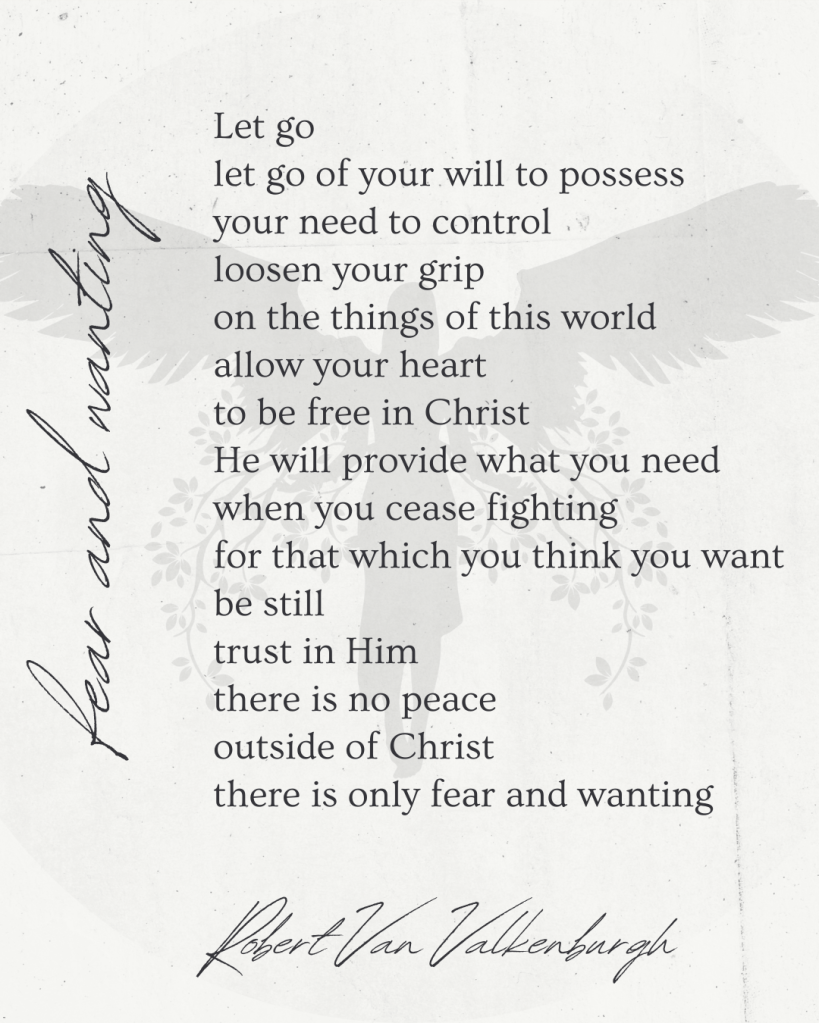 fear and wanting
Let go
let go of your will to possess
your need to control
loosen your grip
on the things of this world
allow your heart
to be free in Christ
He will provide what you need
when you cease fighting
for that which you think you want
be still
trust in Him
there is no peace
outside of Christ
there is only fear and wanting
Robert Van Valkenburgh